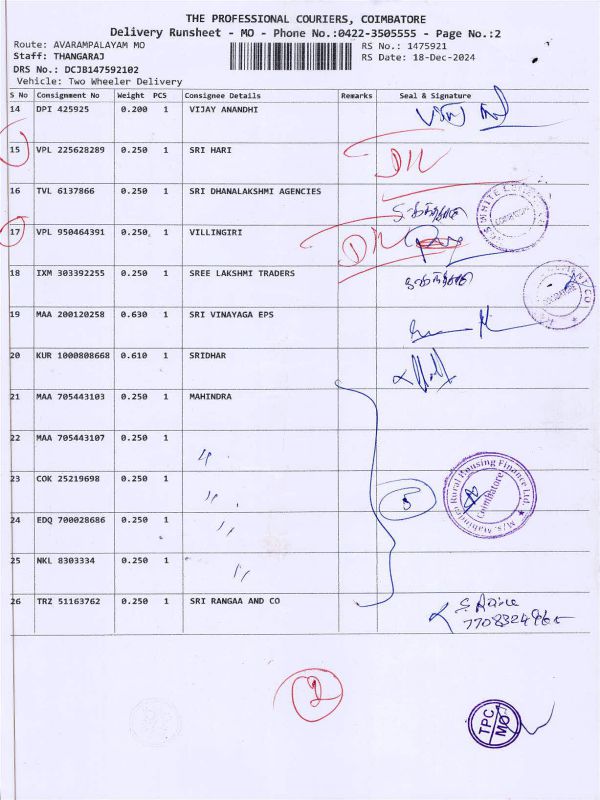 THE PROFESSIONAL COURIERS, COIMBATORE
Delivery Runsheet - MO - Phone No.:0422-3505555 - Page No.:2
Route: AVARAMPALAYAM MO RS No.: 1475921
Staff: THANGARAJ RS Date: 18-Dec-2024
DRS No.: DCJB147592102
Vehicle: Two Wheeler Delivery
S No Consignment No Weight PCS Consignee Details Remarks Seal & Signature
14 DPI 425925 0.200 1 VIJAY ANANDHI
15 VPL 225628289 0.250 1 SRI HARI
16 TVL 6137866 0.250 1 SRI DHANALAKSHMI AGENCIES
17 VPL 950464391 0.250 1 VILLINGIRI
18 IXM 303392255 0.250 1 SREE LAKSHMI TRADERS
19 MAA 200120258 0.630 1 SRI VINAYAGA EPS
20 KUR 1000808668 0.610 1 SRIDHAR
21 MAA 705443103 0.250 1 MAHINDRA
22 MAA 705443107 0.250 1 ,,
23 COK 25219698 0.250 1 ,,
5
M/s. Mahindra Rural Housing Finance Ltd.
Coimbatore
24 EDQ 700028686 0.250 1 ,,
25 NKL 8303334 0.250 1 ,,
26 TRZ 51163762 0.250 1 SRI RANGAA AND CO
2
TPC
MO